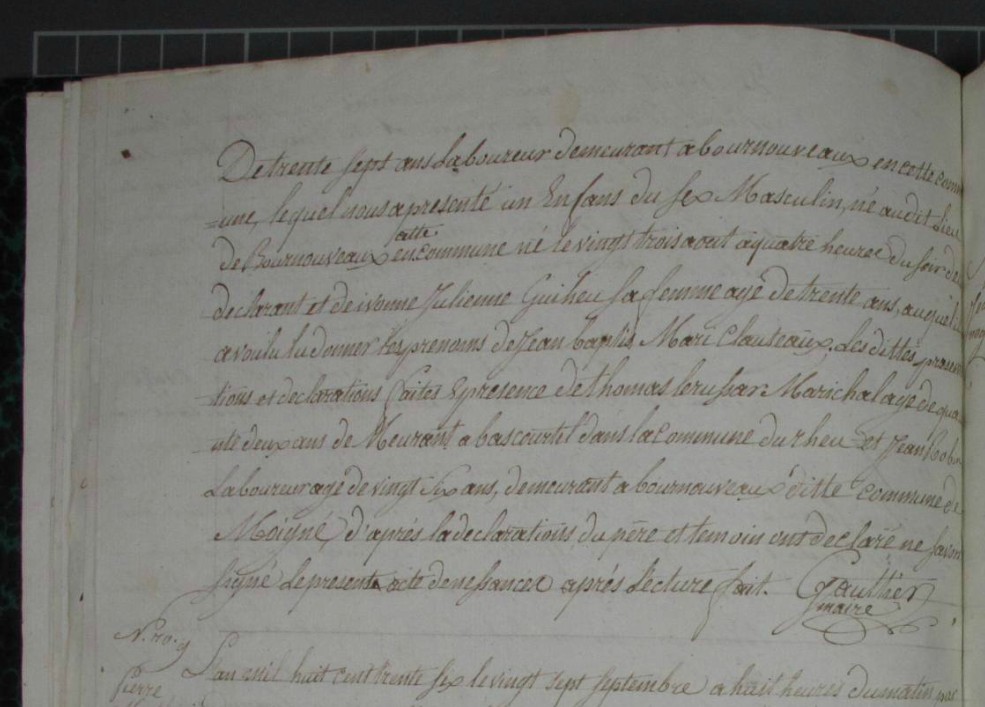 De trente sept ans Laboureur demeurant a bournouveaux en cette com
=une, lequel nous apresenté un Enfans du sex Masculin, né audit lieu
de Bournouveaux en cette commune né le vingt trois aout à quatre heures du soir de
declarant et de ivonne Julienne Guiheu sa femme agé de trente ans, auquel il
a voulu lu donner les prenoms de Jean baptis Mari Clauteaux. Les dittes
tions et declarations faites presence de thomas Marichal agé de qua
nte deux ans de Meurant a bascourtil dans la Commune du rheu et Jean
Laboureur agé de vingt Six ans, demeurant a bournouveaux ditte commune de
Moigné, d'aprés la declarations du père et temoin ont declaré ne savoir
signé Le present acte de nessancel aprés Lecture fait. Gauthier
maire
L'an mil huit cent trente six le vingt sept septembre a huit heures du matin
pierre